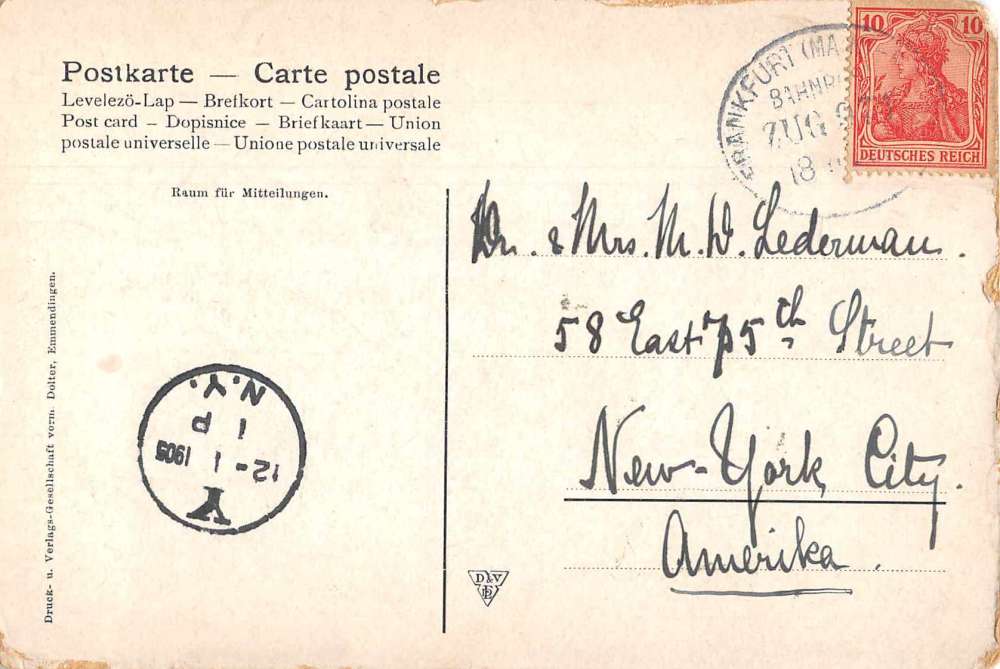 Postkarte — Carte postale
Levelezö-Lap — Brefkort — Cartolina postale
Post card — Dopisnice — Briefkaart — Union
postale universelle — Unione postale universale
Raum für Mitteilungen.
FRANKFURT (MA
BAHNP
ZUG
18
10 10
DEUTSCHES REICH
& Mrs. M. D. Lederman.
58 East 75th Street
New-York City.
Amerika.
N.Y.
1 P
12-1 1905
Y
Druck- u. Verlags-Gesellschaft vorm. Dolter, Emmendingen.
D & V
E